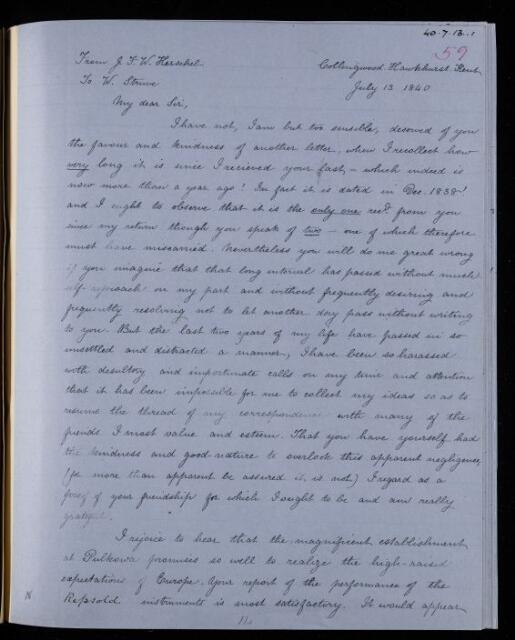 40-7-13.1
59
From J. F. W. Herschel
Collingwood Hawkhurst Kent
To W. Struve
July 13 1840
My dear Sir,
I have not, I am but too sensible, deserved of you
the favour and kindness of another letter, when I recollect how
very long it is since I recieved your last, – which indeed is
now more than a year ago! In fact it is dated in Dec. 1838!
and I ought to observe that it is the only one recd. from you
since my return though you speak of two – one of which therefore
must have miscarried. Nevertheless you will do me great wrong
if you imagine that that long interval has passed without much
self reproach on my part and without frequently desiring and
frequently resolving not to let another day pass without writing
to you. But the last two years of my life have passed in so
unsettled and distracted a manner, I have been so harassed
with desultory and importunate calls on my time and attention
that it has been impossible for me to collect my ideas so as to
resume the thread of my correspondence with many of the
friends I most value and esteem. That you have yourself had
the kindness and good nature to overlook this apparent negligence,
(for more than apparent be assured it is not) I regard as a
proof of your friendship for which I ought to be and am really
grateful.
I rejoice to hear that the magnificent establishment
at Pulkowa promises so well to realize the high-raised
expectations of Europe. Your report of the performance of the
Repsold instruments is most satisfactory. It would appear